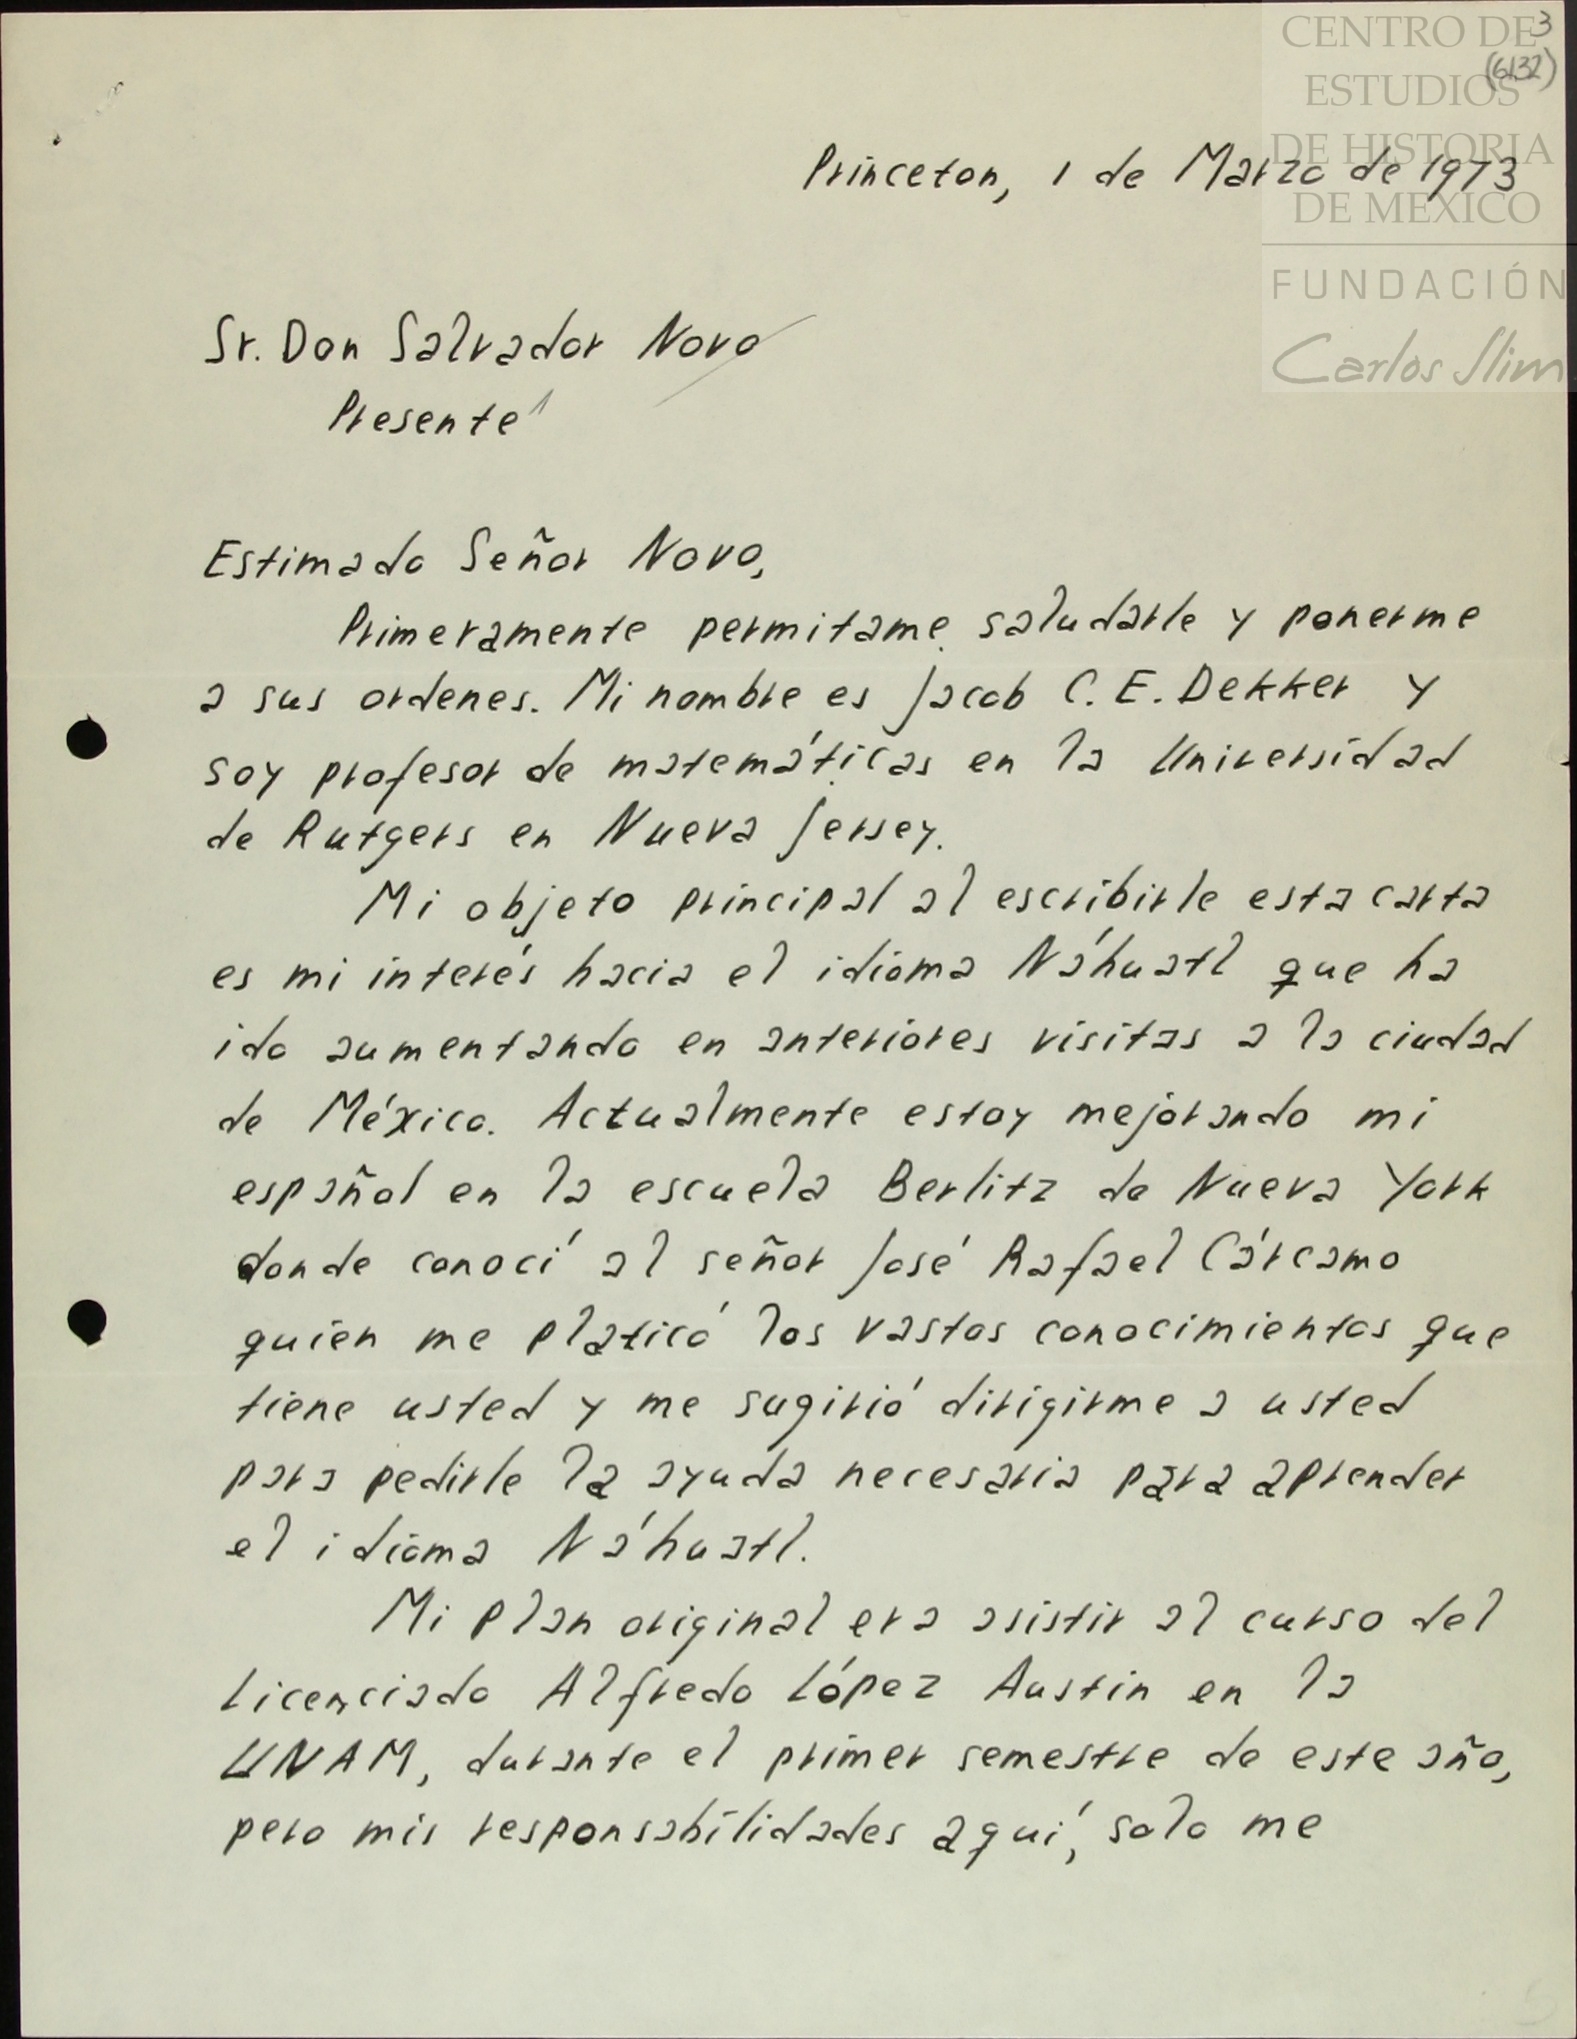 CENTRO DE
ESTUDIOS
DE HISTORIA
DE MEXICO
FUNDACIÓN
Carlos Slim
3
(6132)
Princeton, 1 de Marzo de 1973
Sr. Don Salvador Novo
Presente
Estimado Señor Novo,
Primeramente permitame saludarle y ponerme
a sus ordenes. Mi nombre es Jacob C. E. Dekker y
soy profesor de matemáticas en la Universidad
de Rutgers en Nueva Jersey.
Mi objeto principal al escribirle esta carta
es mi interés hacia el idioma Náhuatl que ha
ido aumentando en anteriores visitas a la ciudad
de México. Actualmente estoy mejorando mi
español en la escuela Berlitz de Nueva York
donde conocí al señor José Rafael Cárcamo
quien me platicó los vastos conocimientos que
tiene usted y me sugirió dirigirme a usted
para pedirle la ayuda necesaria para aprender
el idioma Náhuatl.
Mi plan original era asistir al curso del
Licenciado Alfredo López Austin en la
UNAM, durante el primer semestre de este año,
pero mis responsabilidades aquí, solo me